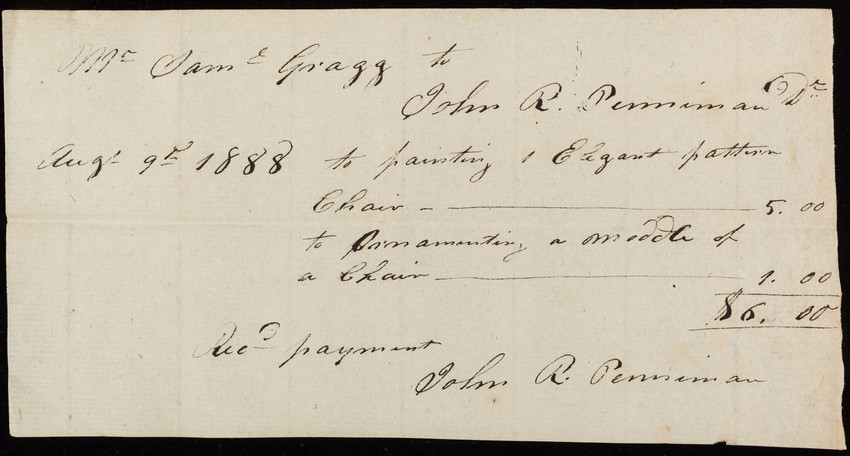 Mr Saml Gragg to
John R. Penniman Dr
Augt 9th 1808 to painting 1 Elegant pattern
Chair — 5.00
to Ornamenting a Moddle of
a Chair — 1.00
$6.00
Recd payment
John R. Penniman